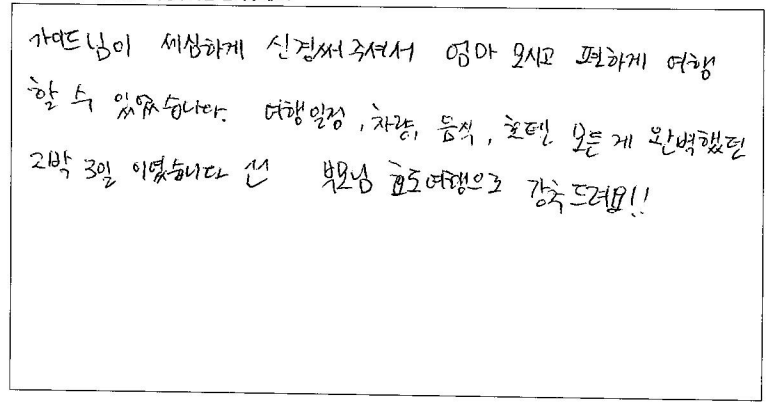 가이드님이 세심하게 신경써주셔서 엄마 모시고 편하게 여행
할 수 있었습니다. 여행일정, 차량, 음식, 호텔 모든게 완벽했던
2박 3일 이였습니다 부모님 효도여행으로 강추드려요!!